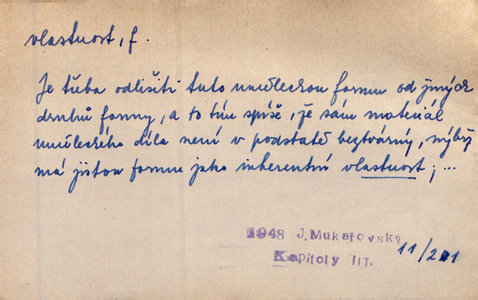 vlastnost, f.
Je třeba odlišiti tuto uměleckou formu od jiných
druhů formy, a to tím spíše, že sám materiál
uměleckého díla není v podstatě beztvárný, nýbrž
má jistou formu jako inherentní vlastnost; ...
1948 J. Mukařovský
Kapitoly III.
11/201